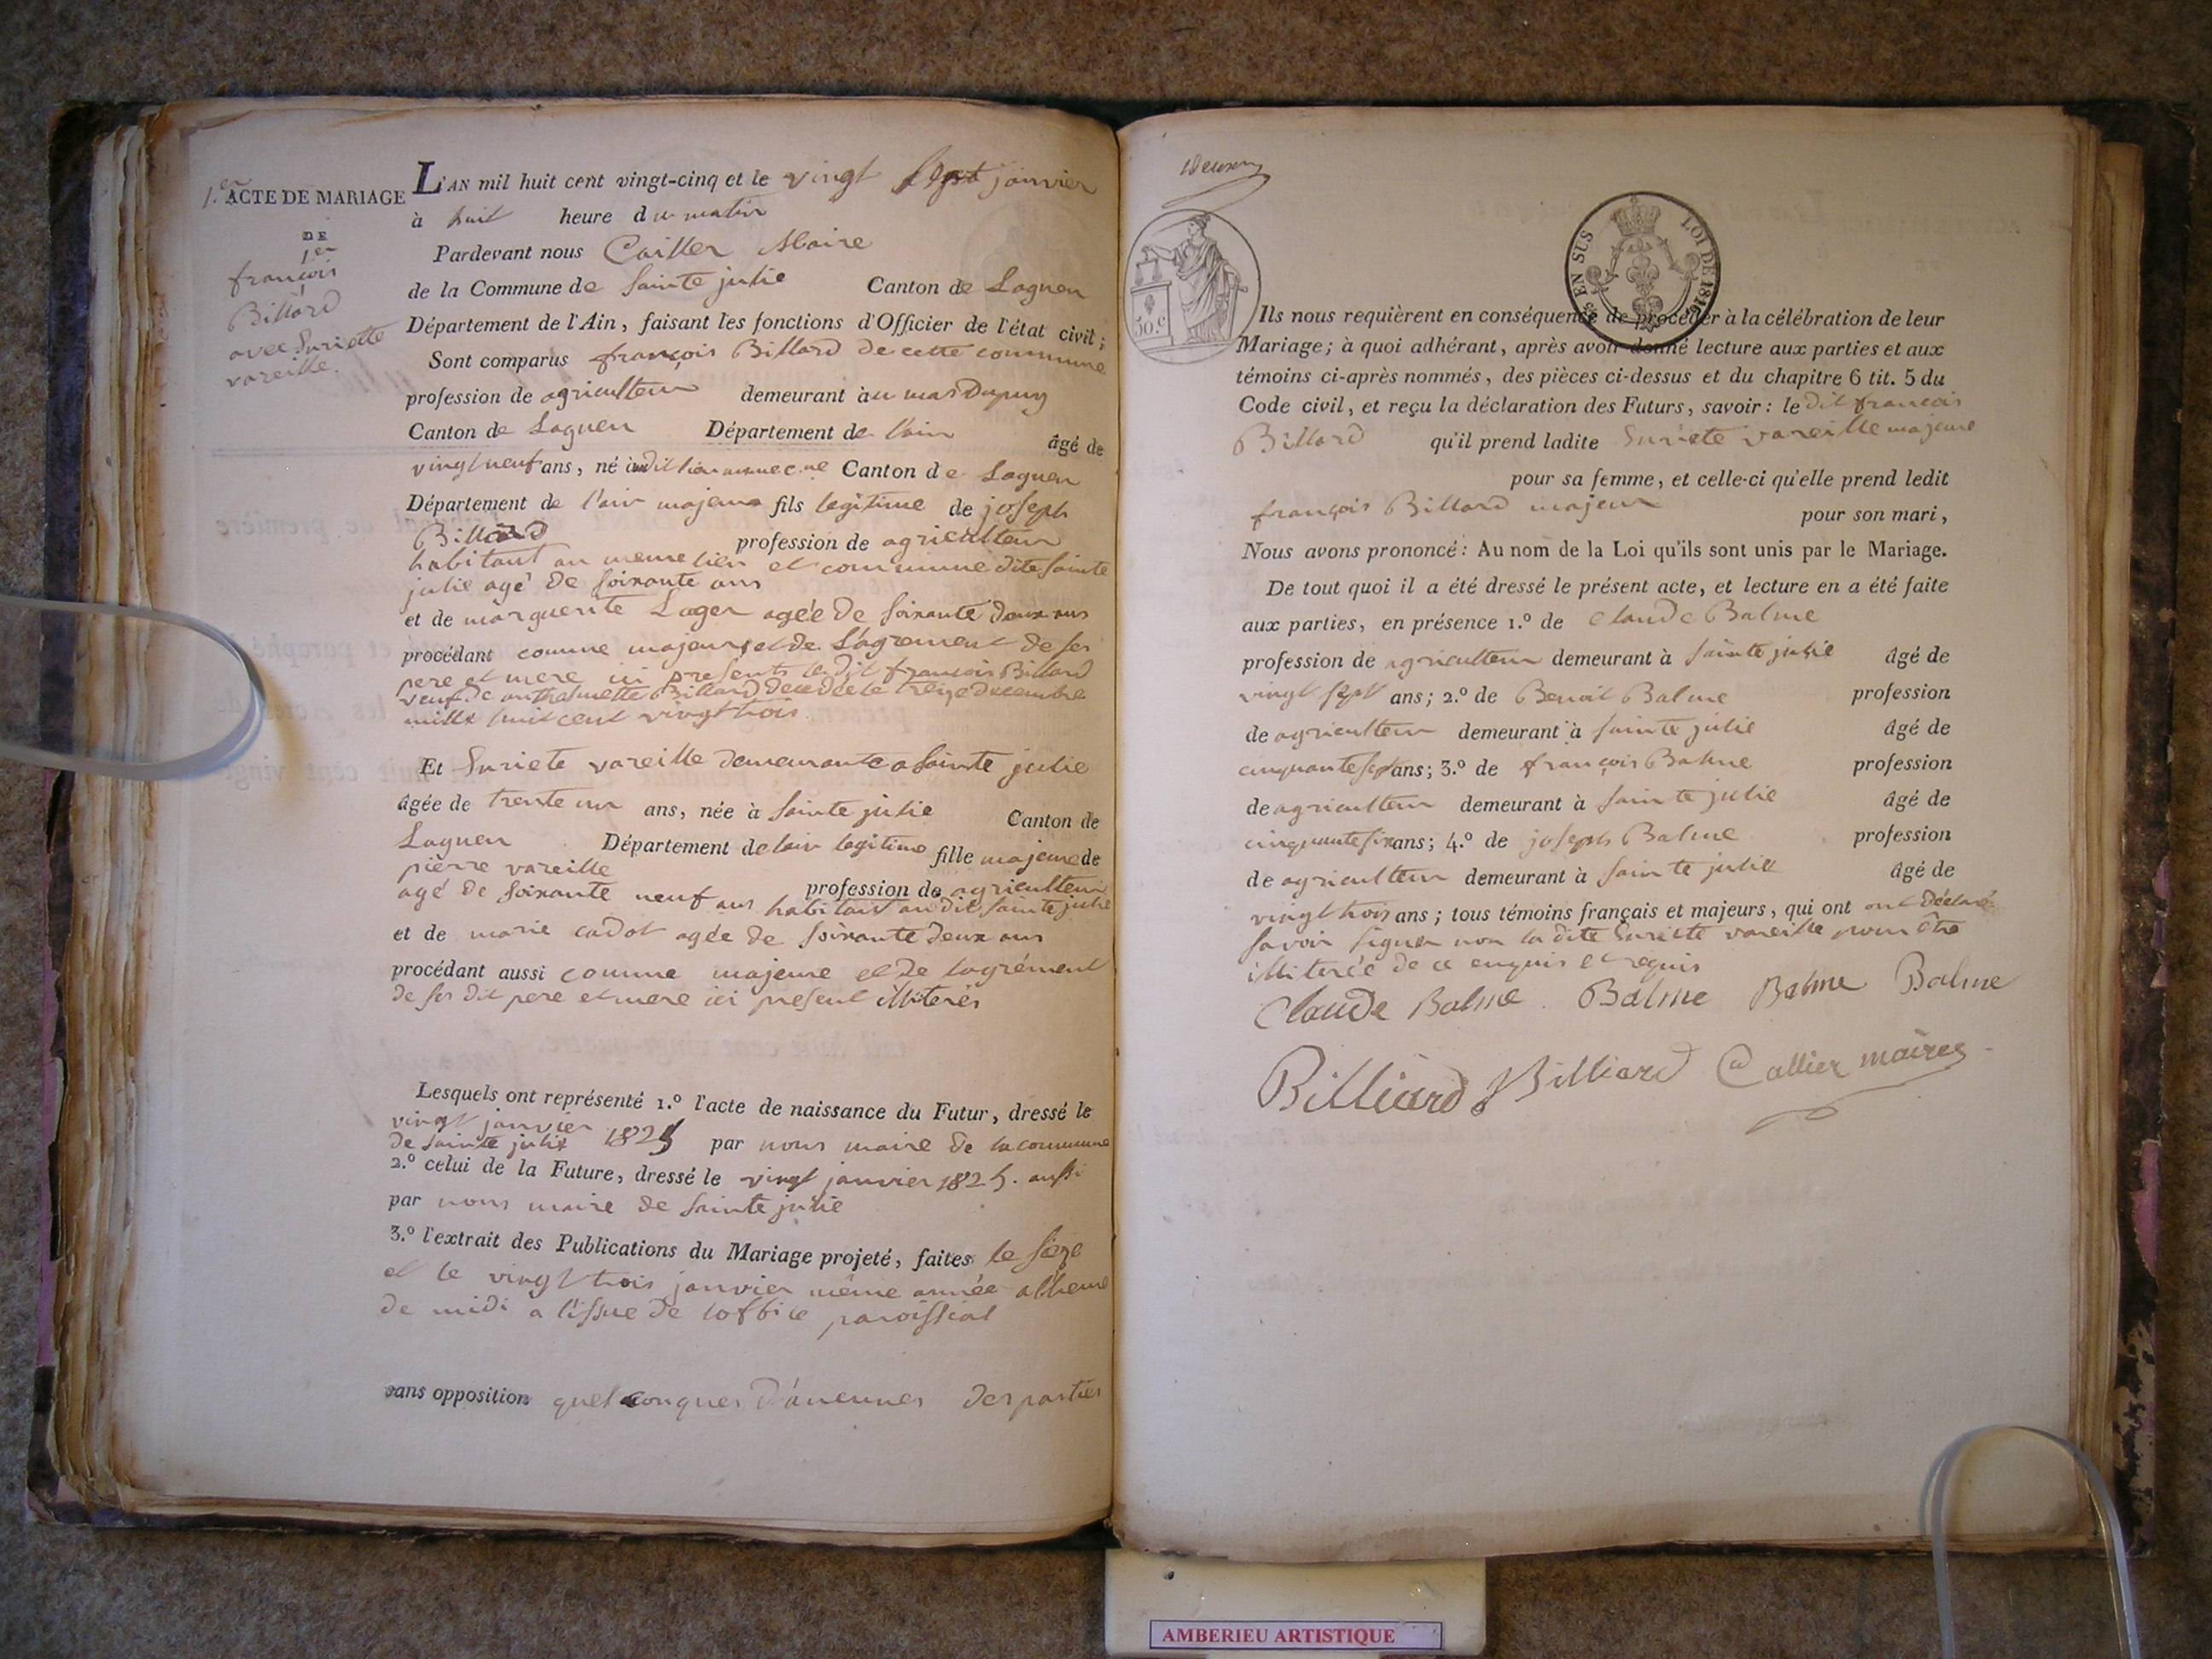 1.er ACTE DE MARIAGE
DE
1er
françois
Billard
avec Suriette
vareille.
L'AN mil huit cent vingt-cinq et le vingt sept janvier
à huit heure du matin
Pardevant nous Cailler Maire
de la Commune de Sainte julie Canton de Lagneu
Département de l'Ain, faisant les fonctions d'Officier de l'état civil;
Sont comparus françois Billard de cette commune
profession de agriculteur demeurant au mas Dupuy
Canton de Lagneu Département de l'ain âgé de
vingt neuf ans, né Canton de Lagneu
Département de l'ain majeur fils legitime de joseph
Billard profession de agriculteur
habitant au meme lieu et commune dite Sainte
julie agé de soixante ans
et de marguerite Lager agée de soixante deux ans
procédant comme majeur et de L'agrement de ses
pere et mere ici presents le dit françois Billard
veuf de Billard decedée le treize decembre
mille huit cent vingt trois
Et Suriete vareille demeurante a Sainte julie
âgée de trente un ans, née à Sainte julie Canton de
Lagneu Département de lain legitime fille majeure de
pierre vareille profession de agriculteur
agé de soixante neuf ans habitant au dit Sainte julie
et de marie cadot agée de soixante deux ans
procédant aussi comme majeure et de lagrément
de ses dit pere et mere ici present illiterés
Lesquels ont représenté 1.º l'acte de naissance du Futur, dressé le
vingt janvier 1825 par nous maire de la commune
de Sainte julie
2.º celui de la Future, dressé le vingt janvier 1825. aussi
par nous maire de Sainte julie
3.º l'extrait des Publications du Mariage projeté, faites le seize
et le vingt trois janvier même année a l'heure
de midi a l'issue de loffice paroissial
sans opposition quelconques d'aucunes des parties
Deuxen
50.C
EN SUS LOI DE 1816
Ils nous requièrent en conséquence de procéder à la célébration de leur
Mariage; à quoi adhérant, après avoir donné lecture aux parties et aux
témoins ci-après nommés, des pièces ci-dessus et du chapitre 6 tit. 5 du
Code civil, et reçu la déclaration des Futurs, savoir: le dit françois
Billard qu'il prend ladite Suriete vareille majeure
pour sa femme, et celle-ci qu'elle prend ledit
françois Billard majeur pour son mari,
Nous avons prononcé: Au nom de la Loi qu'ils sont unis par le Mariage.
De tout quoi il a été dressé le présent acte, et lecture en a été faite
aux parties, en présence 1.º de claude Balme
profession de agriculteur demeurant à Sainte julie âgé de
vingt sept ans; 2.º de Benoit Balme profession
de agriculteur demeurant à Sainte julie âgé de
cinquante sept ans; 3.º de françois Balme profession
de agriculteur demeurant à Sainte julie âgé de
cinquante six ans; 4.º de joseph Balme profession
de agriculteur demeurant à Sainte julie âgé de
vingt trois ans; tous témoins français et majeurs, qui ont ont déclaré
savoir signer non la dite Suriette vareille pour être
illiterée de ce enquis et requis
Claude Balme Balme Balme Balme
Billiard Billiard Callier maire
AMBERIEU ARTISTIQUE